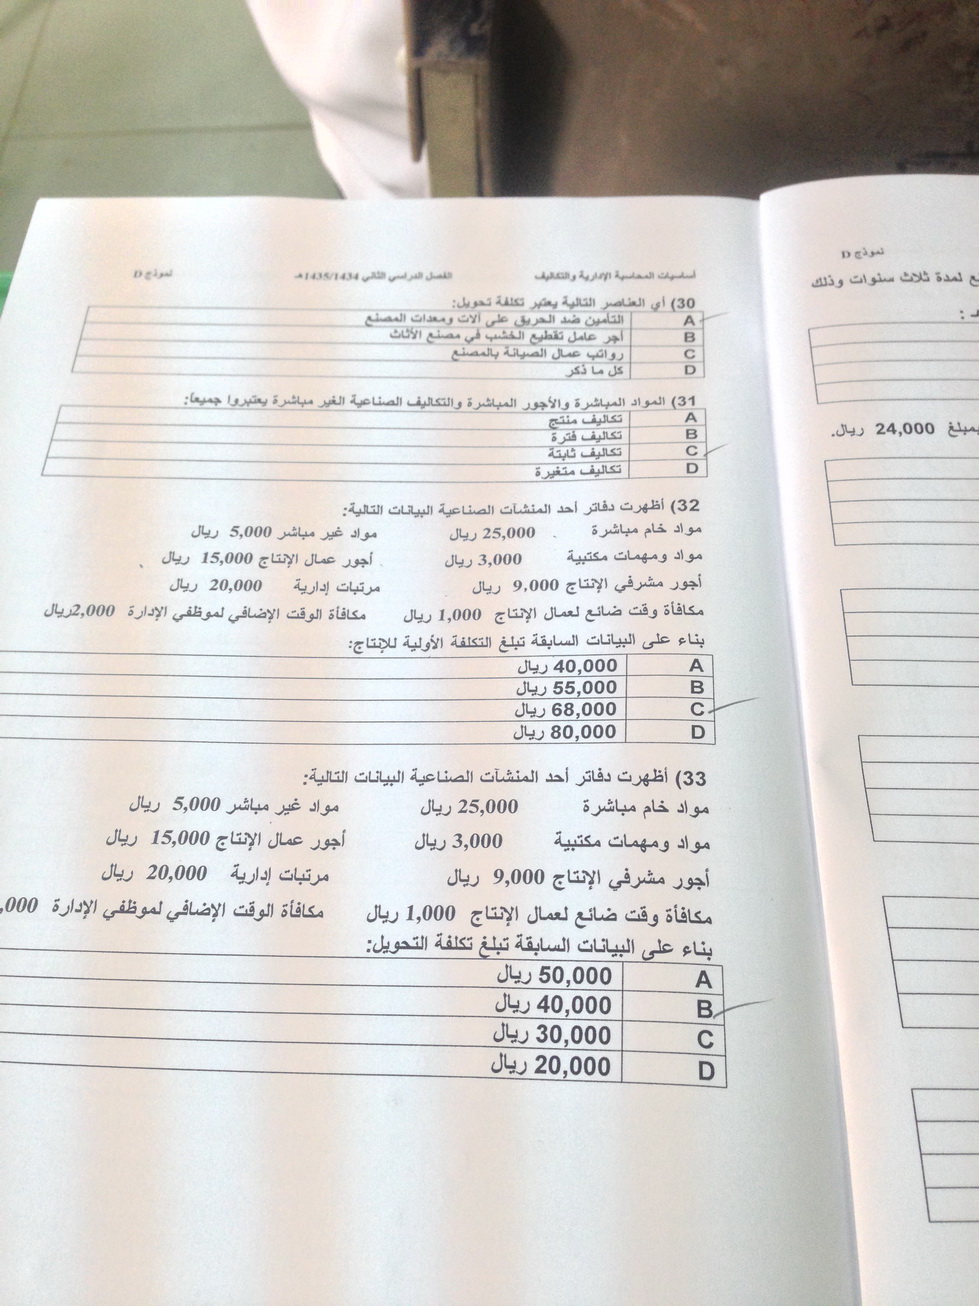 أساسيات المحاسبة الإدارية والتكاليف الفصل الدراسي الثاني 1435/1434هـ نموذج D
30) أي العناصر التالية يعتبر تكلفة تحويل:
A التأمين ضد الحريق على آلات ومعدات المصنع
B أجر عامل تقطيع الخشب في مصنع الأثاث
C رواتب عمال الصيانة بالمصنع
D كل ما ذكر
31) المواد المباشرة والأجور المباشرة والتكاليف الصناعية الغير مباشرة يعتبروا جميعاً:
A تكاليف منتج
B تكاليف فترة
C تكاليف ثابتة
D تكاليف متغيرة
32) أظهرت دفاتر أحد المنشآت الصناعية البيانات التالية:
مواد خام مباشرة 25,000 ريال مواد غير مباشر 5,000 ريال
مواد ومهمات مكتبية 3,000 ريال أجور عمال الإنتاج 15,000 ريال
أجور مشرفي الإنتاج 9,000 ريال مرتبات إدارية 20,000 ريال
مكافأة وقت ضائع لعمال الإنتاج 1,000 ريال مكافأة الوقت الإضافي لموظفي الإدارة 2,000ريال
بناء على البيانات السابقة تبلغ التكلفة الأولية للإنتاج:
A 40,000 ريال
B 55,000 ريال
C 68,000 ريال
D 80,000 ريال
33) أظهرت دفاتر أحد المنشآت الصناعية البيانات التالية:
مواد خام مباشرة 25,000 ريال مواد غير مباشر 5,000 ريال
مواد ومهمات مكتبية 3,000 ريال أجور عمال الإنتاج 15,000 ريال
أجور مشرفي الإنتاج 9,000 ريال مرتبات إدارية 20,000 ريال
مكافأة وقت ضائع لعمال الإنتاج 1,000 ريال مكافأة الوقت الإضافي لموظفي الإدارة ,000
بناء على البيانات السابقة تبلغ تكلفة التحويل:
A 50,000 ريال
B 40,000 ريال
C 30,000 ريال
D 20,000 ريال
نموذج D
لمدة ثلاث سنوات وذلك
بمبلغ 24,000 ريال.